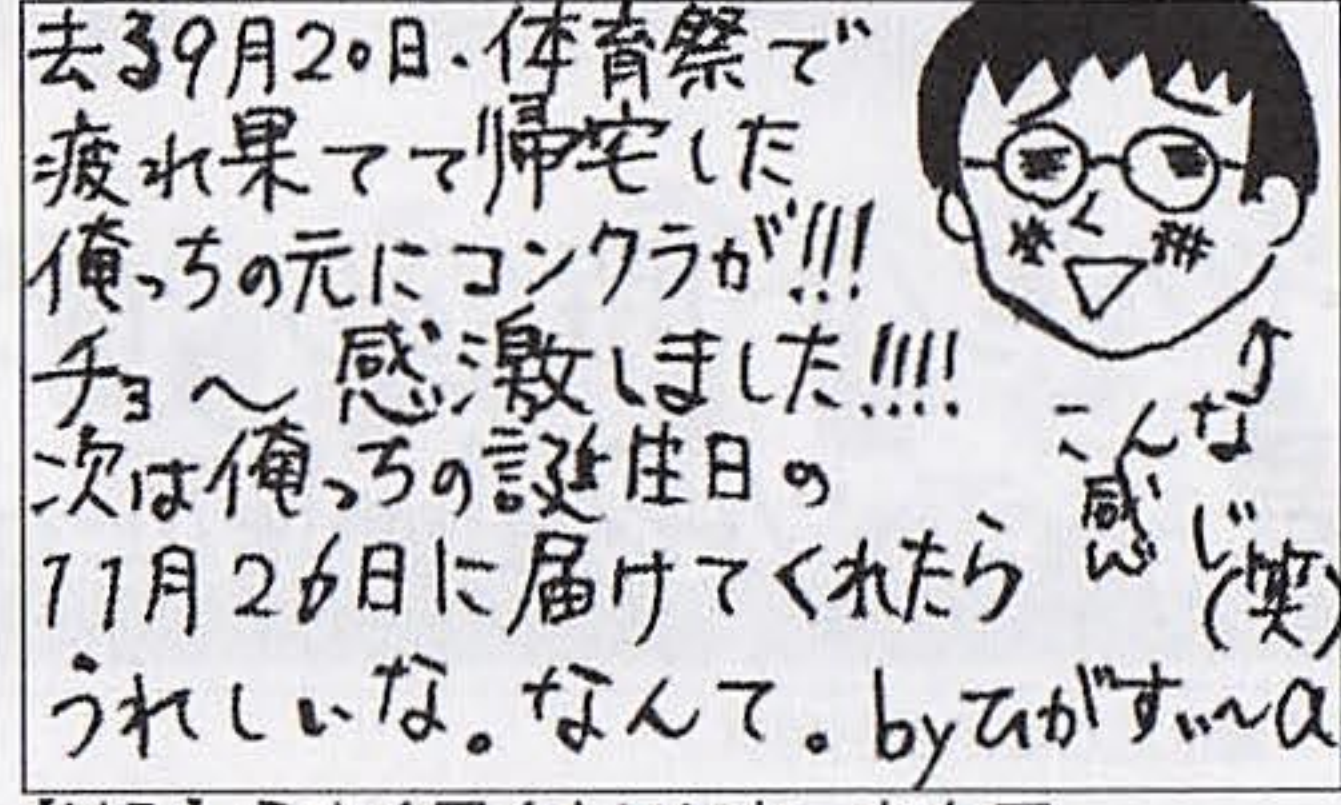 去る9月20日.体育祭で
疲れ果てて帰宅した
俺っちの元にコンクラが!!!
チョ〜感激しました!!!!
次は俺っちの誕生日の
11月26日に届けてくれたら
うれしぃな。なんて。byひがすぃ〜α
こんな
感じ
(笑)